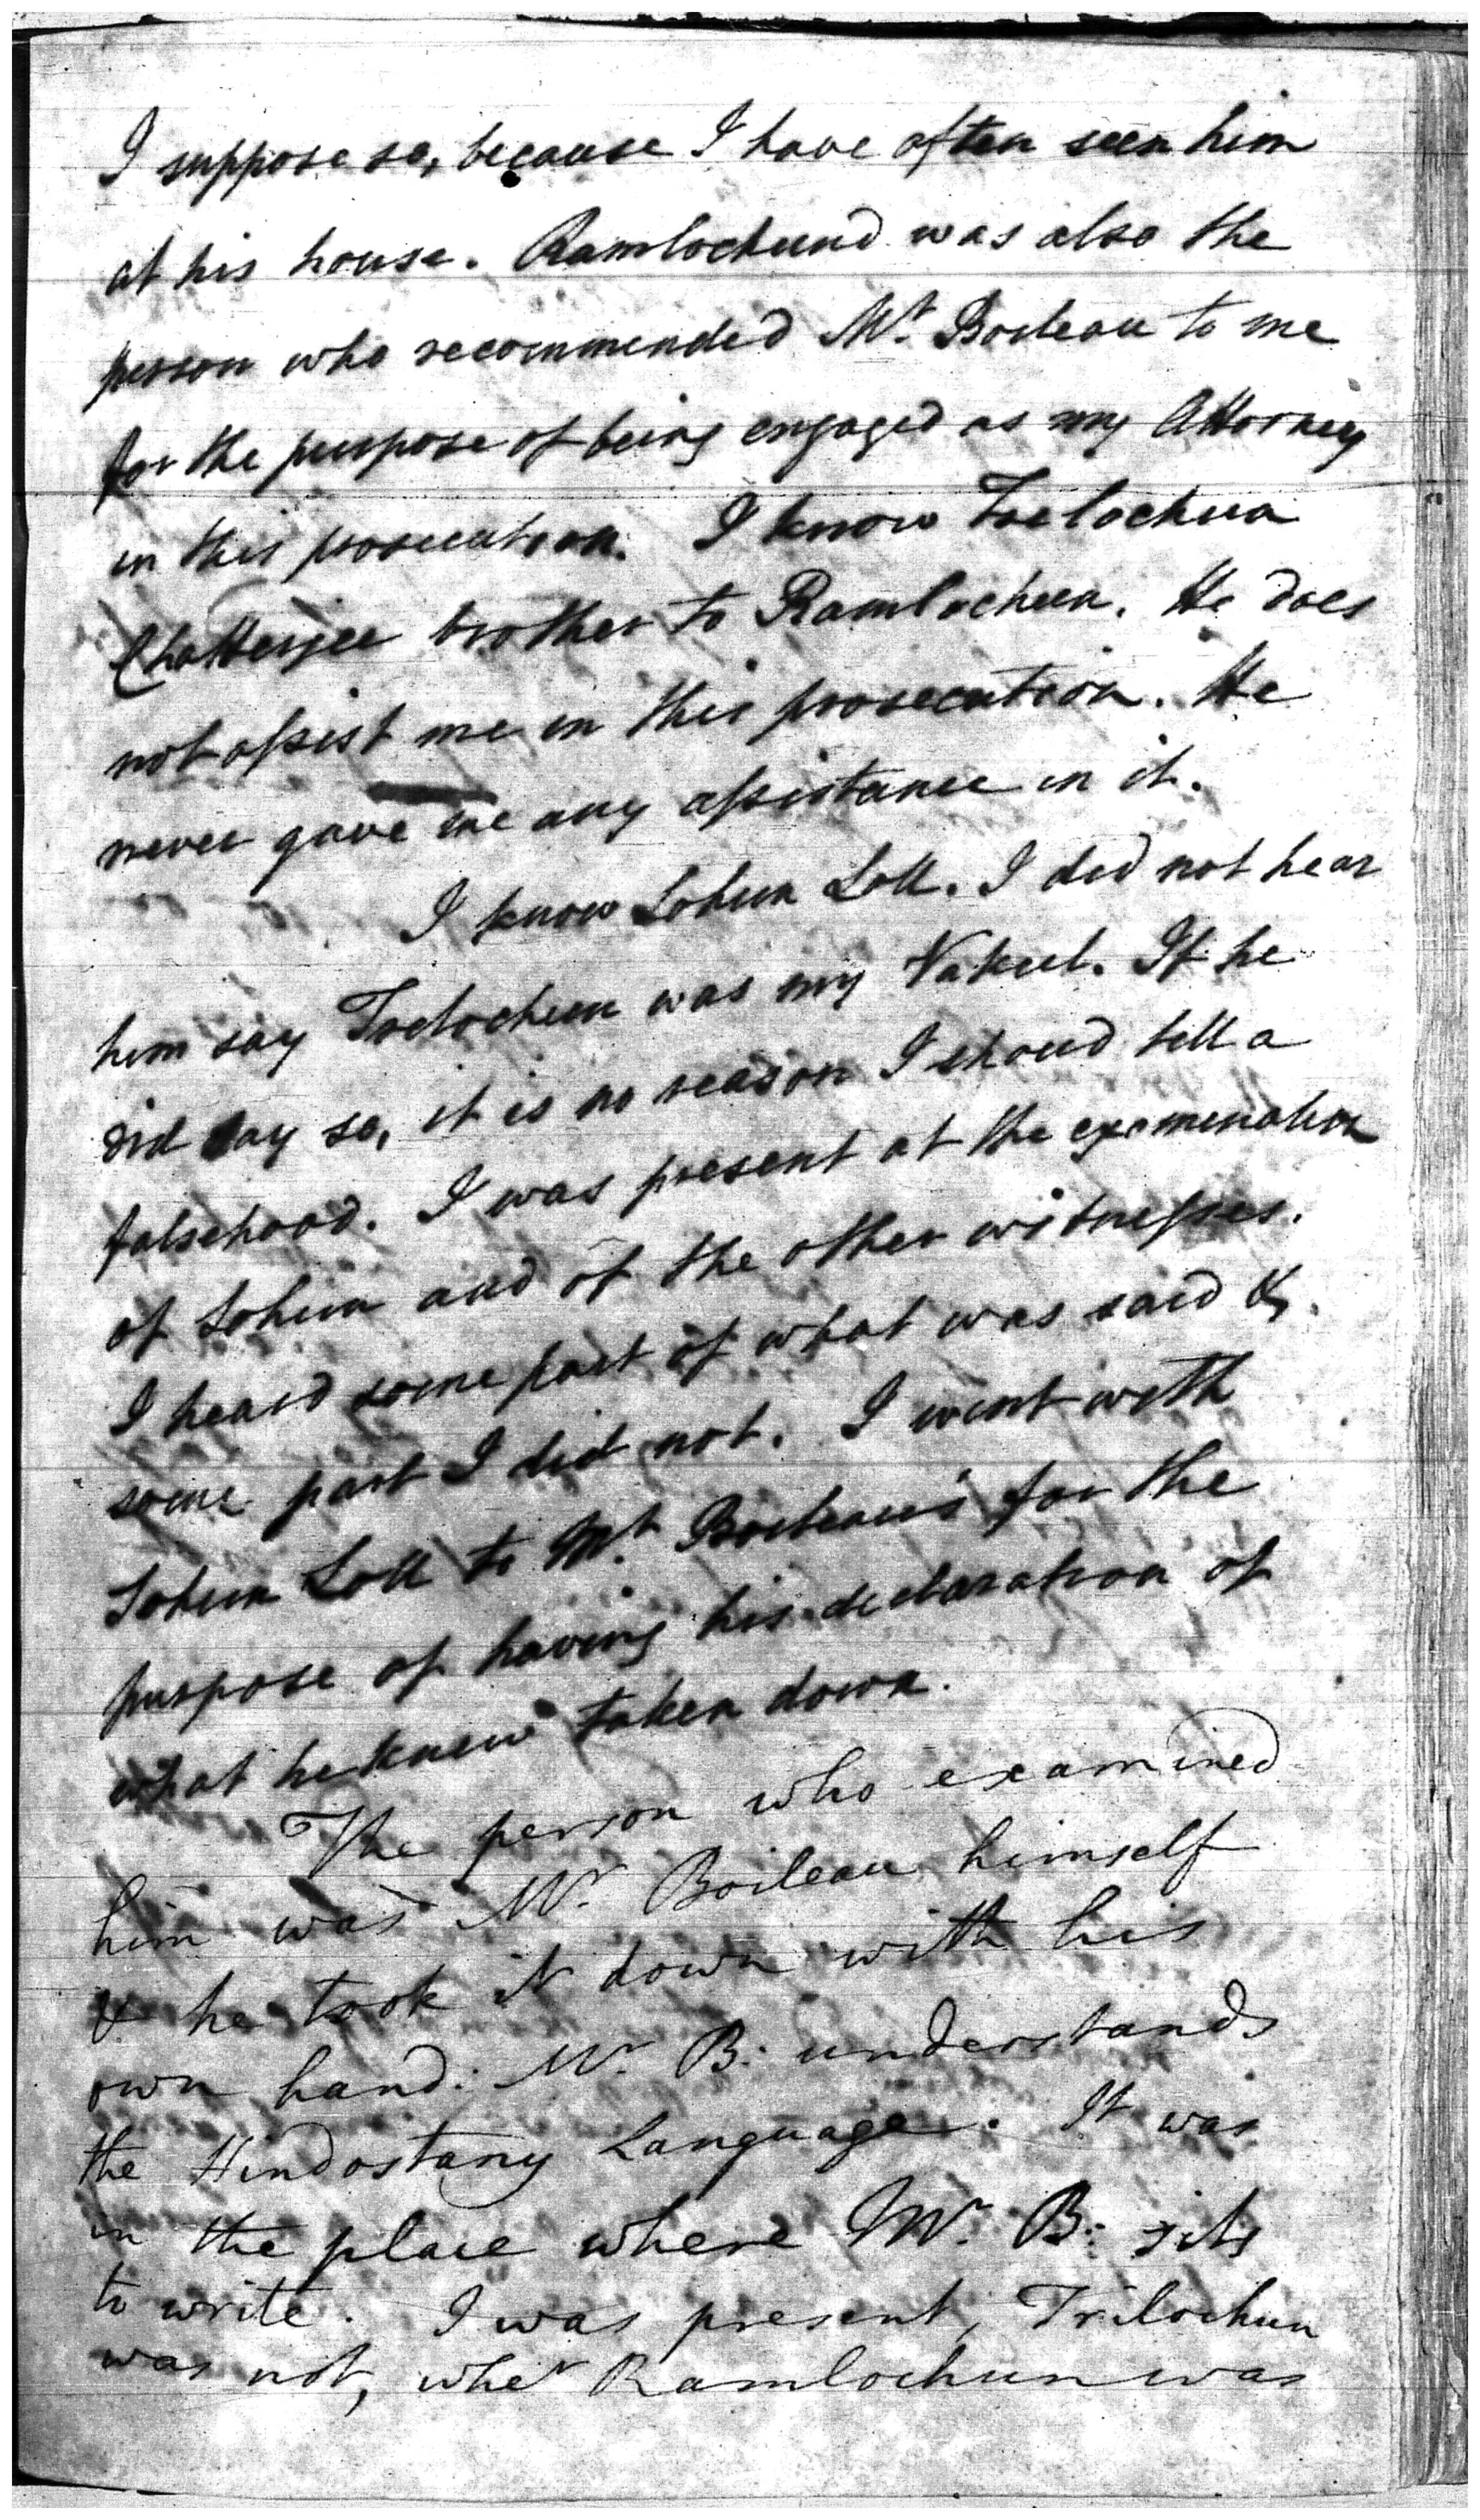 I suppose so, because I have often seen him
at his house. Ramlochund was also the
person who recommended Mr. Boileau to me
for the purpose of being engaged as my Attorney
in this prosecution. I know Treelochun
Chatterjee brother to Ramlochun. He does
not assist me in this prosecution. He
never gave me any assistance in it.
I know Sohun Loll. I did not hear
him say Treelochun was my Vakeel. If he
did say so, it is no reason I shoud tell a
falsehood. I was present at the examination
of Sohun and of the other witnesses.
I heard some part of what was said &
some part I did not. I went with
Sohun Loll to Mr. Boileau's for the
purpose of having his declaration of
what he knew taken down.
The person who examined
him was Mr. Boileau himself
& he took it down with his
own hand. Mr. B: understands
the Hindostany Language. It was
in the place where Mr. B: sits
to write. I was present, Trilochun
was not, whr Ramlochun was